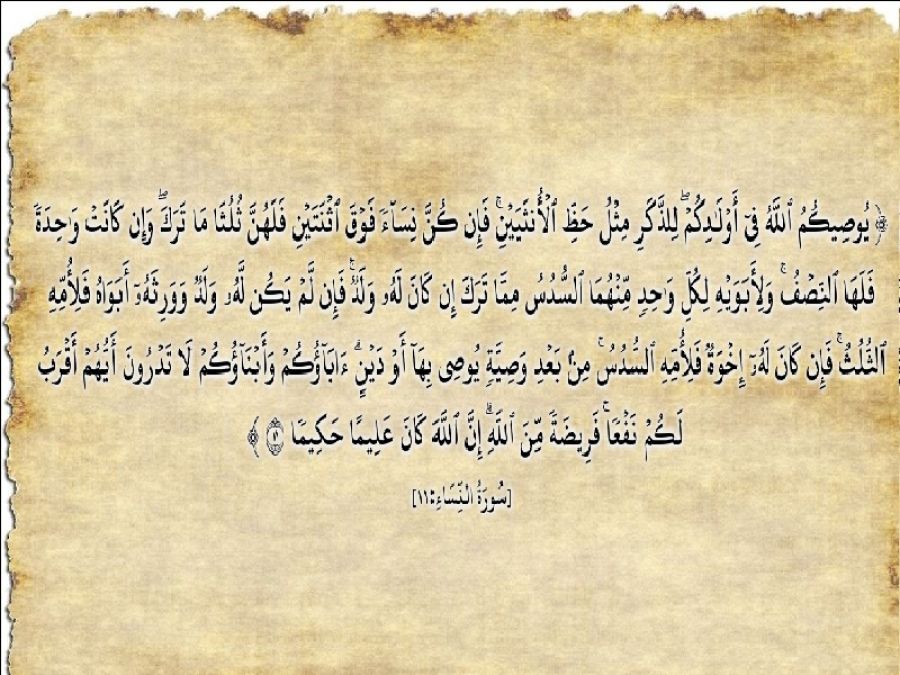 ﴿ يُوصِيكُمُ ٱللَّهُ فِىٓ أَوْلَٰدِكُمْ ۖ لِلذَّكَرِ مِثْلُ حَظِّ ٱلْأُنثَيَيْنِ ۚ فَإِن كُنَّ نِسَآءً فَوْقَ ٱثْنَتَيْنِ فَلَهُنَّ ثُلُثَا مَا تَرَكَ ۖ وَإِن كَانَتْ وَٰحِدَةً
فَلَهَا ٱلنِّصْفُ ۚ وَلِأَبَوَيْهِ لِكُلِّ وَٰحِدٍ مِّنْهُمَا ٱلسُّدُسُ مِمَّا تَرَكَ إِن كَانَ لَهُۥ وَلَدٌ ۚ فَإِن لَّمْ يَكُن لَّهُۥ وَلَدٌ وَوَرِثَهُۥٓ أَبَوَاهُ فَلِأُمِّهِ
ٱلثُّلُثُ ۚ فَإِن كَانَ لَهُۥٓ إِخْوَةٌ فَلِأُمِّهِ ٱلسُّدُسُ ۚ مِنۢ بَعْدِ وَصِيَّةٍ يُوصِى بِهَآ أَوْ دَيْنٍ ۗ ءَابَآؤُكُمْ وَأَبْنَآؤُكُمْ لَا تَدْرُونَ أَيُّهُمْ أَقْرَبُ
لَكُمْ نَفْعًا ۚ فَرِيضَةً مِّنَ ٱللَّهِ ۗ إِنَّ ٱللَّهَ كَانَ عَلِيمًا حَكِيمًا ۝١١ ﴾
[سُورَةُ النِّسَاءِ:١١]